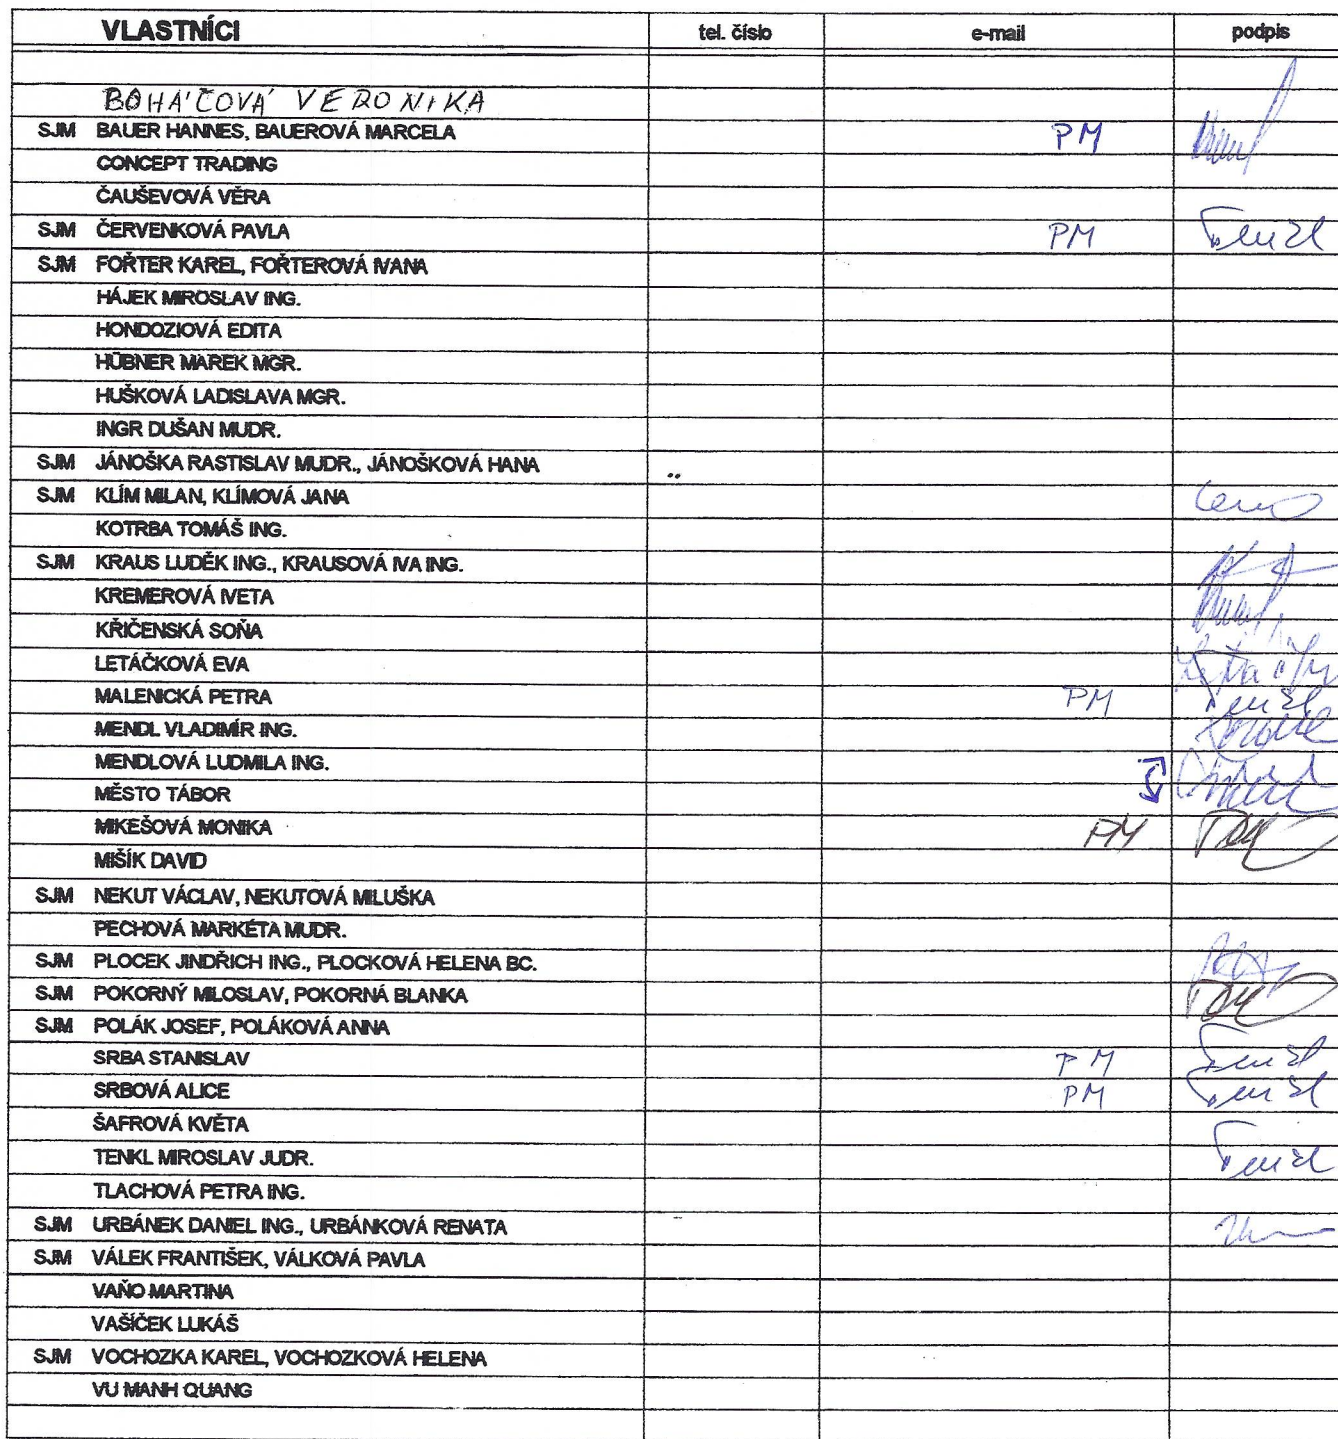 VLASTNÍCI tel. číslo e-mail podpis
BOHÁČOVÁ VERONIKA
SJM BAUER HANNES, BAUEROVÁ MARCELA PM
CONCEPT TRADING
ČAUŠEVOVÁ VĚRA
SJM ČERVENKOVÁ PAVLA PM
SJM FOŘTER KAREL, FOŘTEROVÁ IVANA
HÁJEK MIROSLAV ING.
HONDOZIOVÁ EDITA
HÜBNER MAREK MGR.
HUŠKOVÁ LADISLAVA MGR.
INGR DUŠAN MUDR.
SJM JÁNOŠKA RASTISLAV MUDR., JÁNOŠKOVÁ HANA
SJM KLÍM MILAN, KLÍMOVÁ JANA
KOTRBA TOMÁŠ ING.
SJM KRAUS LUDĚK ING., KRAUSOVÁ IVA ING.
KREMEROVÁ IVETA
KŘIČENSKÁ SOŇA
LETÁČKOVÁ EVA
MALENICKÁ PETRA PM
MENDL VLADIMÍR ING.
MENDLOVÁ LUDMILA ING.
MĚSTO TÁBOR
MIKEŠOVÁ MONIKA PM
MIŠÍK DAVID
SJM NEKUT VÁCLAV, NEKUTOVÁ MILUŠKA
PECHOVÁ MARKÉTA MUDR.
SJM PLOCEK JINDŘICH ING., PLOCKOVÁ HELENA BC.
SJM POKORNÝ MILOSLAV, POKORNÁ BLANKA
SJM POLÁK JOSEF, POLÁKOVÁ ANNA
SRBA STANISLAV PM
SRBOVÁ ALICE PM
ŠAFROVÁ KVĚTA
TENKL MIROSLAV JUDR.
TLACHOVÁ PETRA ING.
SJM URBÁNEK DANIEL ING., URBÁNKOVÁ RENATA
SJM VÁLEK FRANTIŠEK, VÁLKOVÁ PAVLA
VAŇO MARTINA
VAŠÍČEK LUKÁŠ
SJM VOCHOZKA KAREL, VOCHOZKOVÁ HELENA
VU MANH QUANG